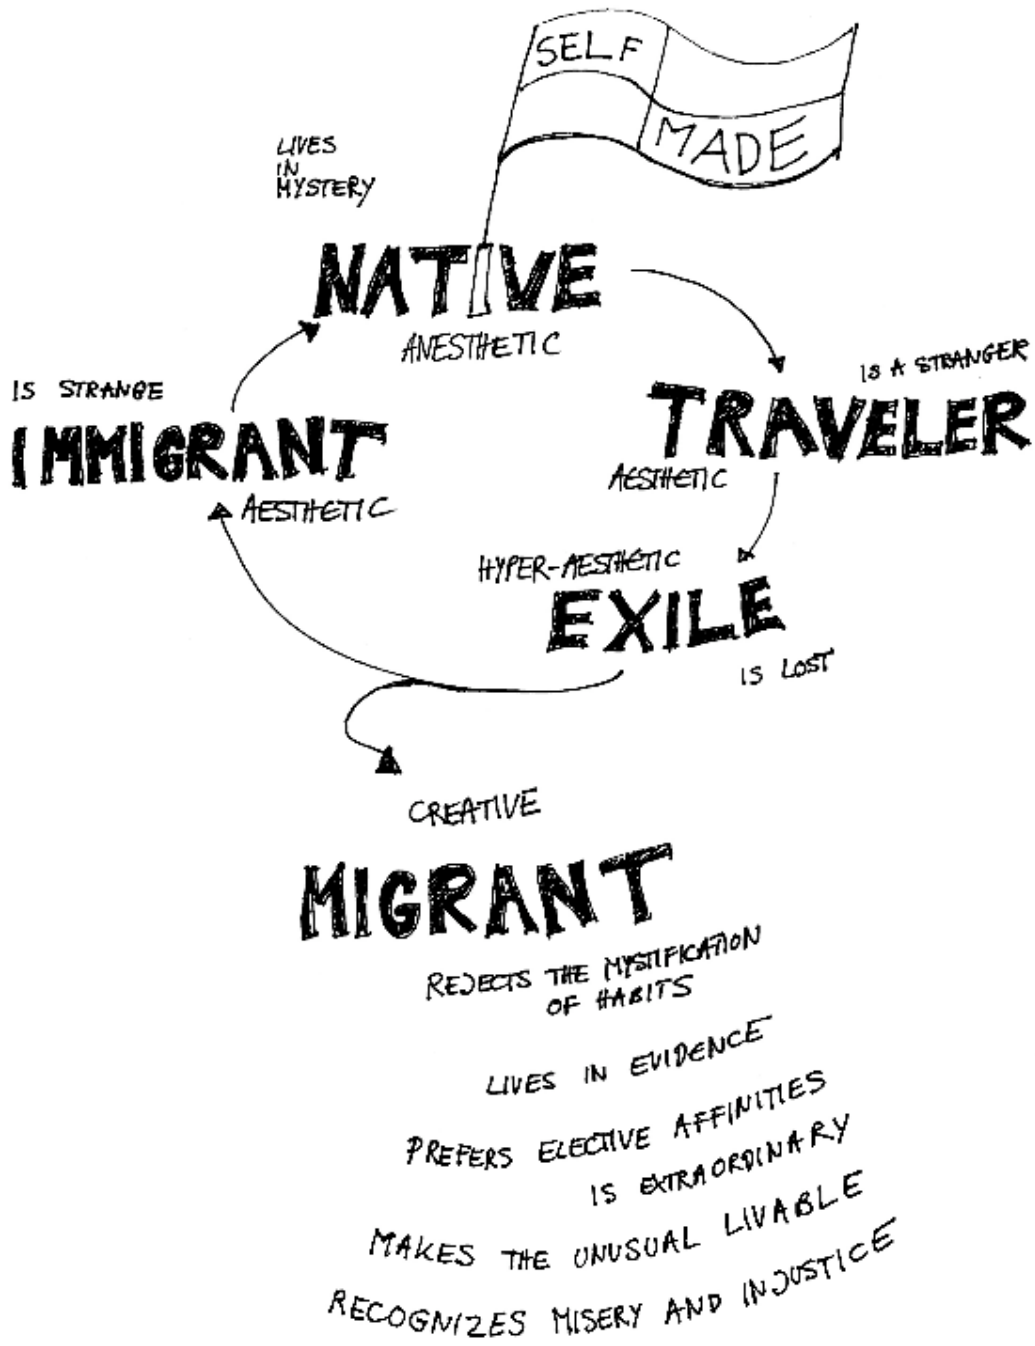 SELF
MADE
LIVES
IN
MYSTERY
NATIVE
ANESTHETIC
IS A STRANGER
TRAVELER
AESTHETIC
IS STRANGE
IMMIGRANT
AESTHETIC
HYPER-AESTHETIC
EXILE
IS LOST
CREATIVE
MIGRANT
REJECTS THE MYSTIFICATION
OF HABITS
LIVES IN EVIDENCE
PREFERS ELECTIVE AFFINITIES
IS EXTRAORDINARY
MAKES THE UNUSUAL LIVABLE
RECOGNIZES MISERY AND INJUSTICE